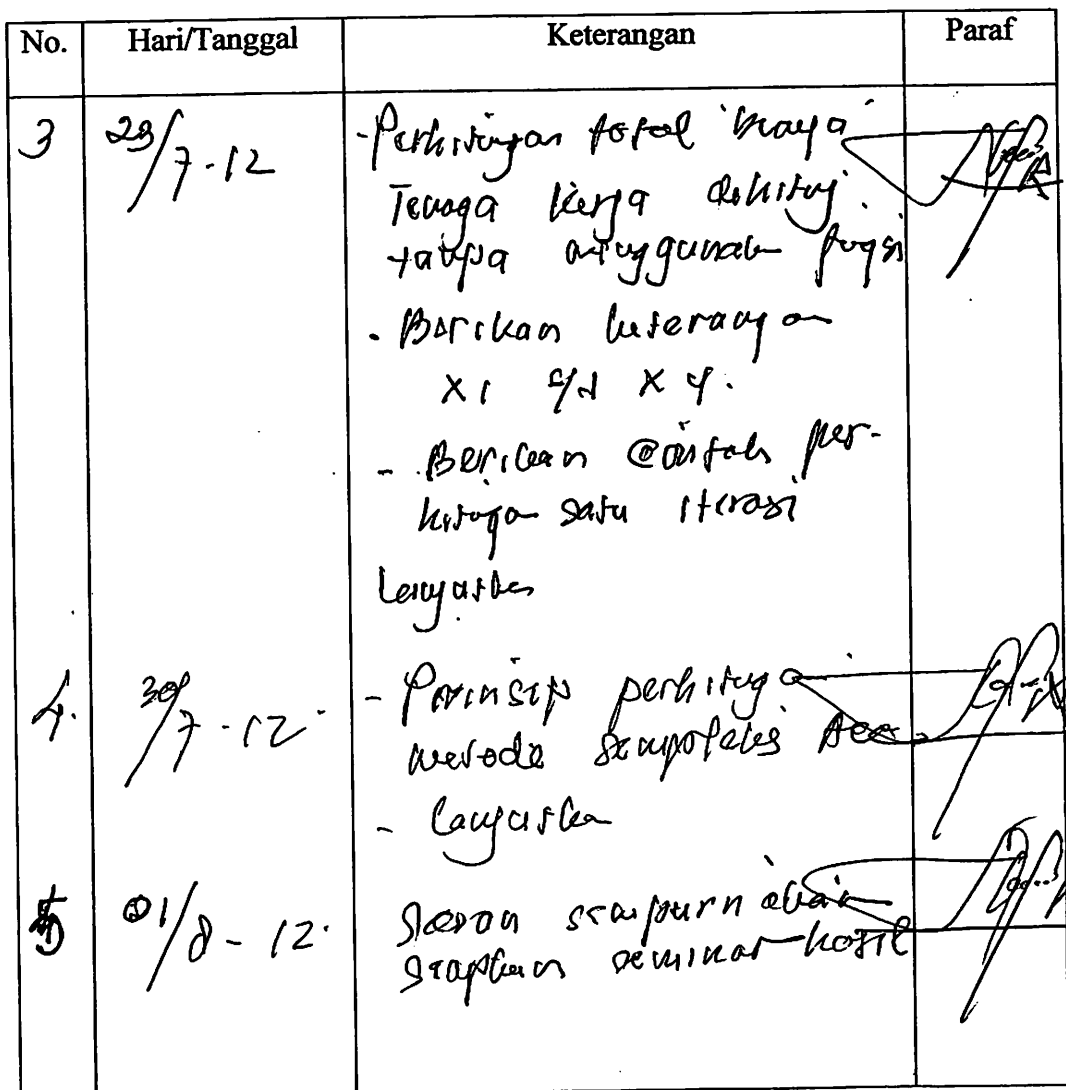 No. Hari/Tanggal Keterangan Paraf
3 29/7-12 - Perhitungan total biaya
Tenaga kerja dihitung
tanpa menggunakan fungsi
- Berikan keterangan
X1 s/d X4.
- Berikan contoh per-
hitungan satu iterasi
Lanjutkan
4. 30/7-12 - Prinsip perhitungan
metode simpleks
- Lanjutkan
5 01/8-12. sempurnakan
siapkan seminar hasil